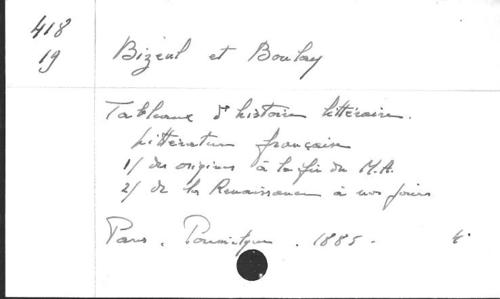 418
19
Bizeul et Boulay
Tableaux d'histoire littéraire.
Littérature française
1/ des origines à la fin du M.A.
2/ de la Renaissance à nos jours
Paris. Poussielgue. 1885.